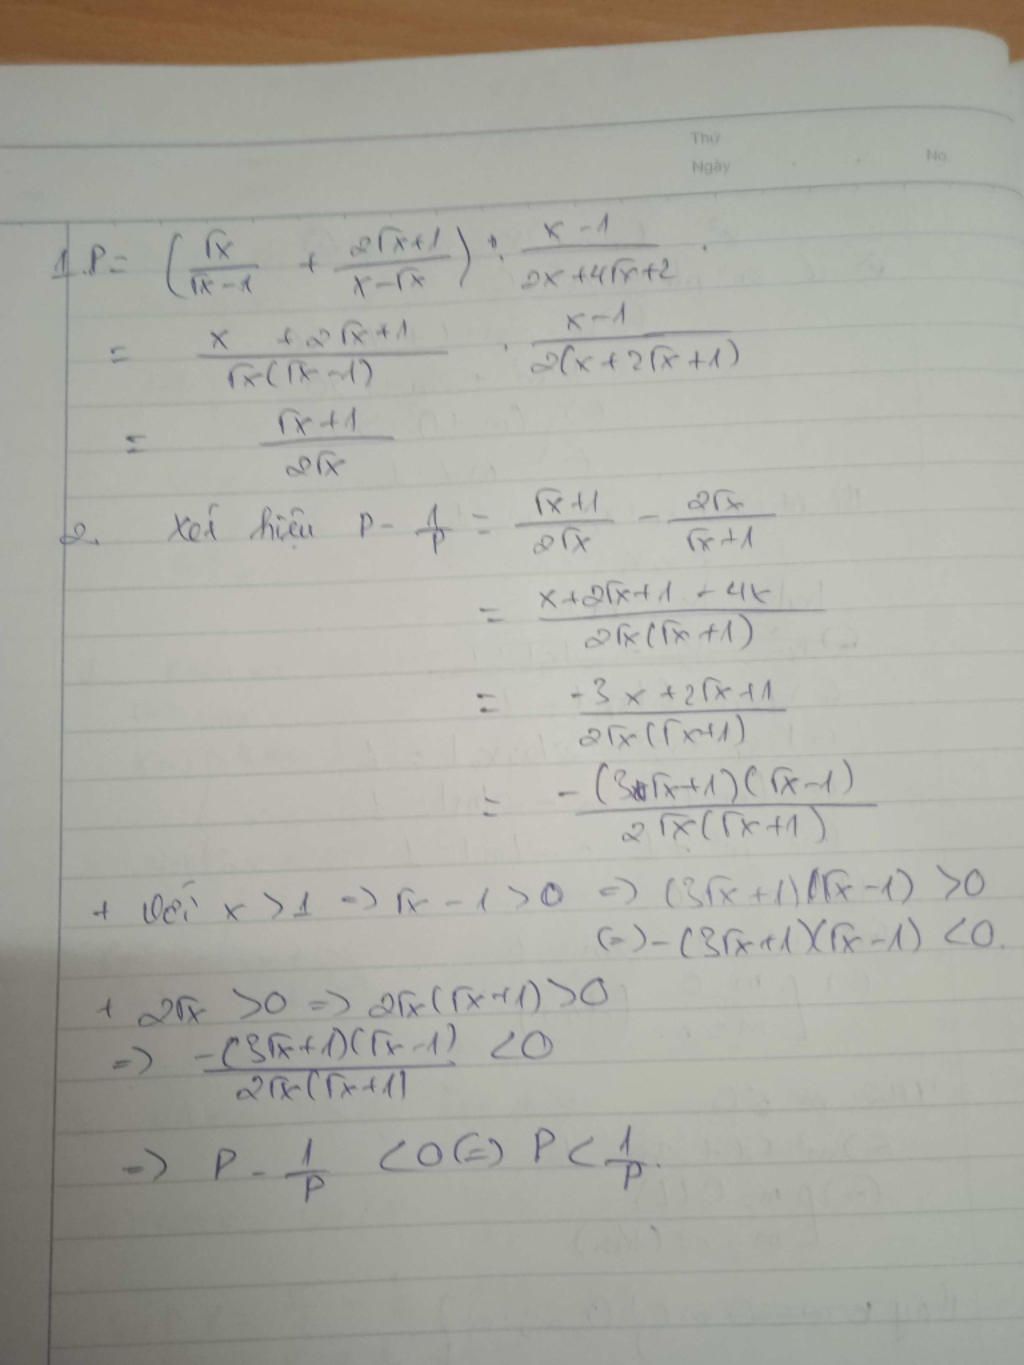 Thứ
Ngày No.
1. P = (√x/(√x-1) + (2√x+1)/(x-√x)) : (x-1)/(2x+4√x+2) .
= (x + 2√x+1)/(√x(√x-1)) . (x-1)/(2(x+2√x+1))
= (√x+1)/(2√x)
2. Xét hiệu P - 1/P = (√x+1)/(2√x) - 2√x/(√x+1)
= (x+2√x+1 - 4x)/(2√x(√x+1))
= (-3x+2√x+1)/(2√x(√x+1))
= -(3√x+1)(√x-1)/(2√x(√x+1))
+ Với x > 1 => √x - 1 > 0 => (3√x+1)(√x-1) > 0
(=) -(3√x+1)(√x-1) < 0.
+ 2√x > 0 => 2√x(√x+1) > 0
=> -(3√x+1)(√x-1)/(2√x(√x+1) < 0
=> P - 1/P < 0 (=) P < 1/P.